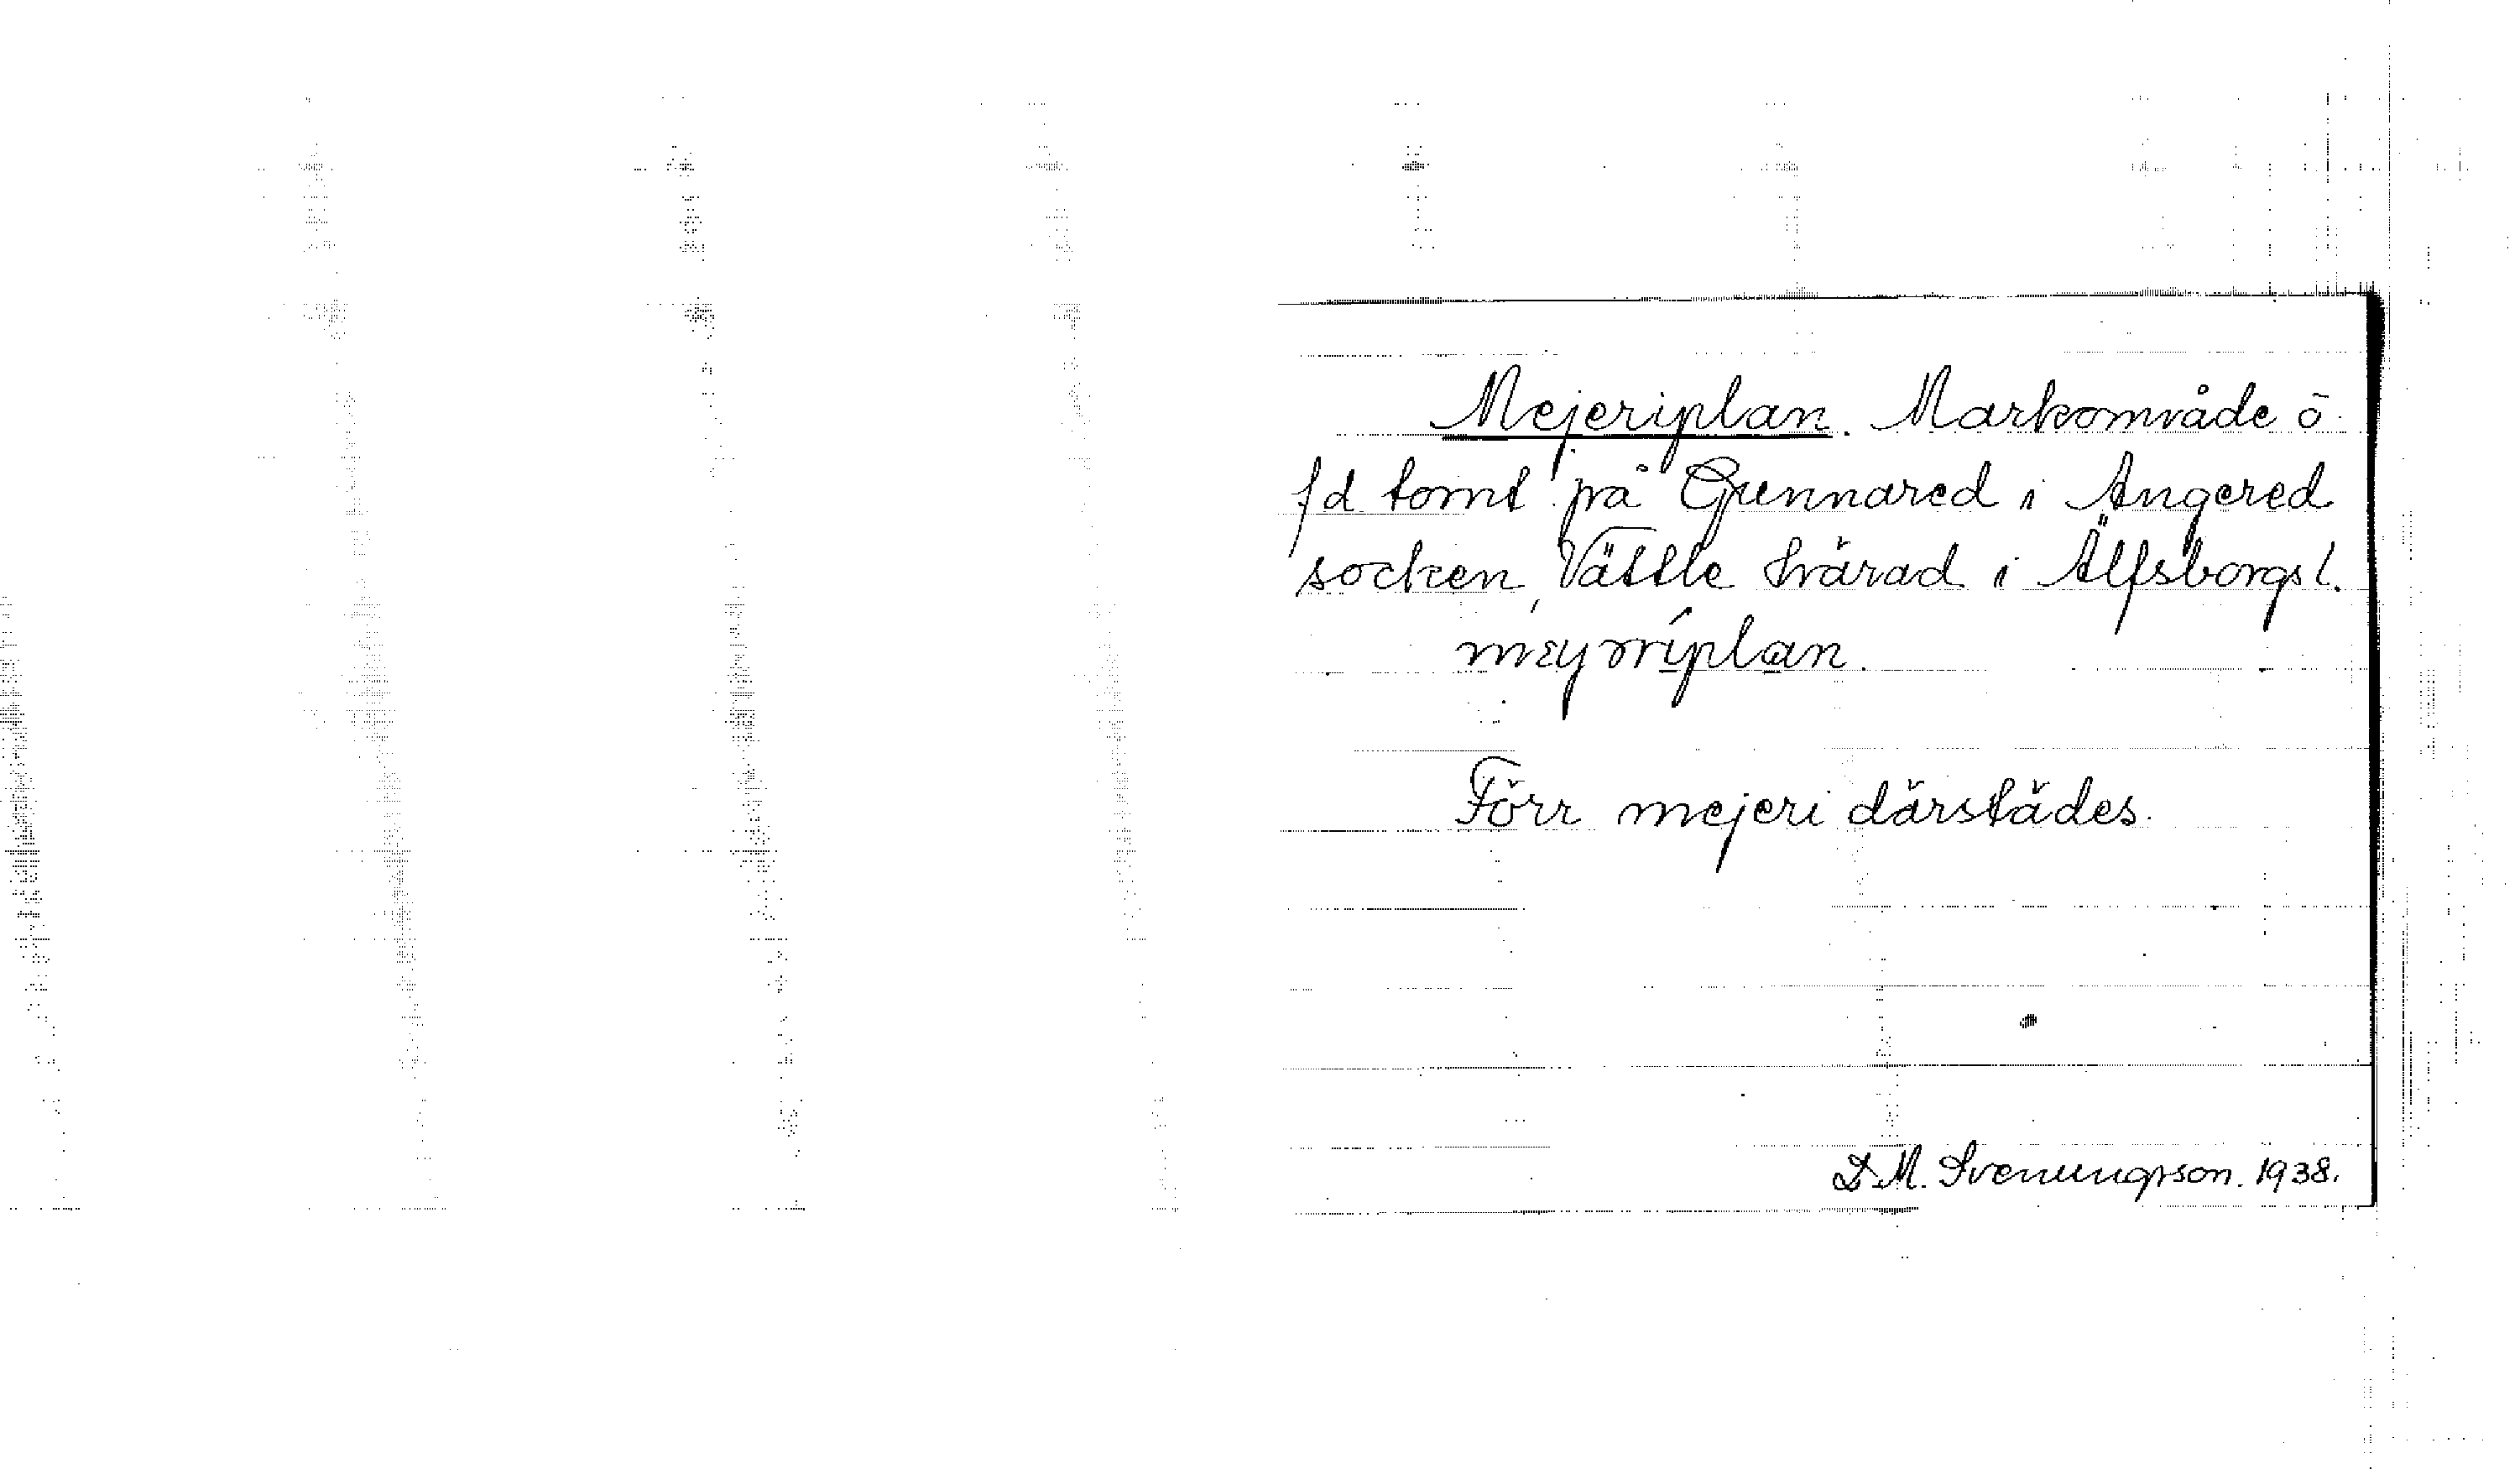 Mejeriplan. Markområde ō
fd tomt på Gunnared i Angered
socken, Vättle härad i Älfsborgs l.
Förr mejeri därstädes.
D. M. Svenungsson. 1938.